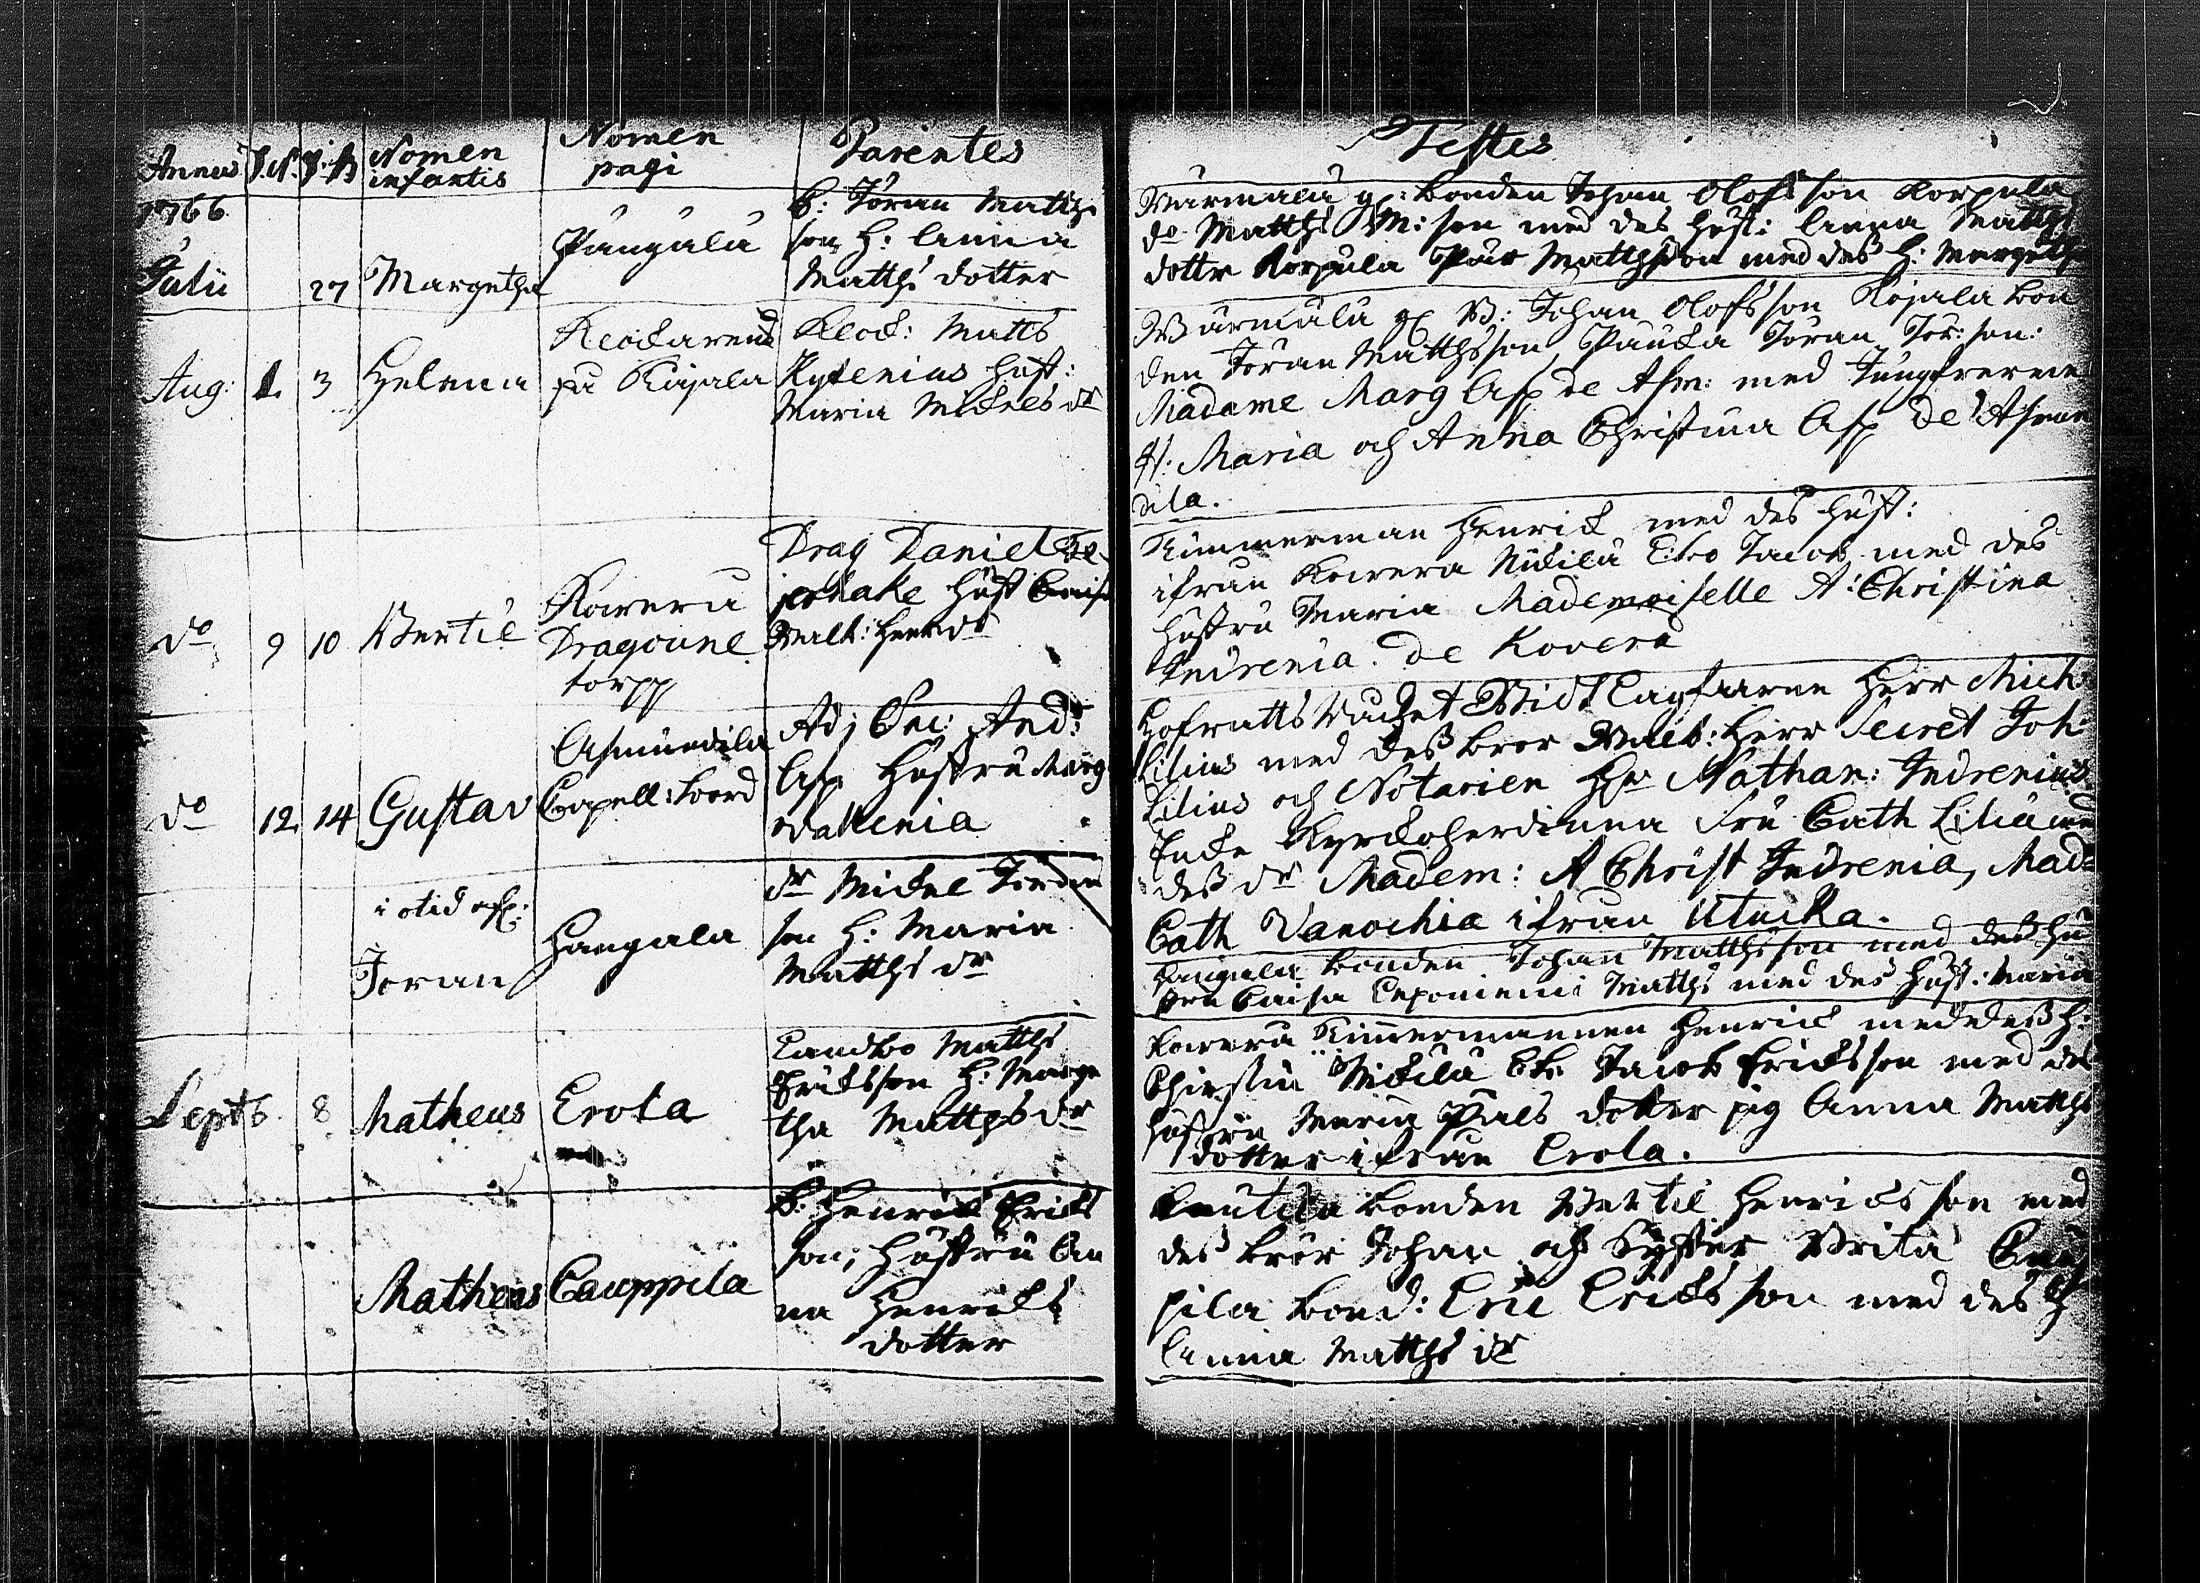 Annus D.N. D.B Nomen infantis Nomen pagi Parentes
1766
Julii 27 Margetha Pangala
B: Jöran Matths
son H: Anna
Matths dotter
Aug: 1. 3 Helena
Klockarens
på Kajala
Klock: Matts
Hytenius hust:
Maria Mickels dr
do 9 10 Bertil
Kovera
Dragoune
torpp
Drag Daniel
hust Caisa
Walb: Henr dr
do 12. 14 Gustav
Asmundila
Capell: bord
Adj Sac: And:
Asp Hustru Marg
Wallenia
i otid
Jöran
Hangala
dr Mickel Jöran
son H: Maria
Matths dr
Septb 8 Matheus Erola
Landbo Matths
Ericksson H: Marge
tha Matths dr
Matheus Cauppila
B: Henrick Ericks
son, Hustru An
na Henricks
dotter
Testes
Wärmälä bonden Johan Olofsson Korpula
do Matths M: son med des hust: Anna Matths
dotter Korpula Pär Mattsson med dess H: Margeth
Wärmälä B: Johan Olofsson Kojala bon
den Jöran Matthsson Pauka Jöran Jör: son:
Madame Marg Asp de Asm: med Jungfrurne
H: Maria och Anna Christina Asp de Asmun
dila.
Timmerman Henrick med des hust:
ifrån Kovera Nickilä Jacob med des
hustru Maria Mademoiselle A: Christina
Indrenia. de Kovera
Hofratts Lagfarne Herr Mich
Lilius med dess bror Herr Secret Joh
Lilius och Notarien Hr Nathan: Indrenius
Encke Kyrckoherdinna Fru Cath Lilia med
dess dr Madem: A Christ Indrenia, Mad
Cath Vanochia ifrån Utucka.
Hangala bonden Johan Matthsson med des hu
stru Caisa Leponiemi Matths med des hust: Maria
Kovera Timmermannen Henrick med dess H:
Chirstin Nickilä Jacob Ericksson med des
hustru Maria Påls dotter pig Anna Matths
dotter ifrån Erola.
Knutila bonden Bertil Henricsson med
des bror Johan och Syster Brita Cau
pila bond: Eric Ericksson med des H
Anna Matths dr